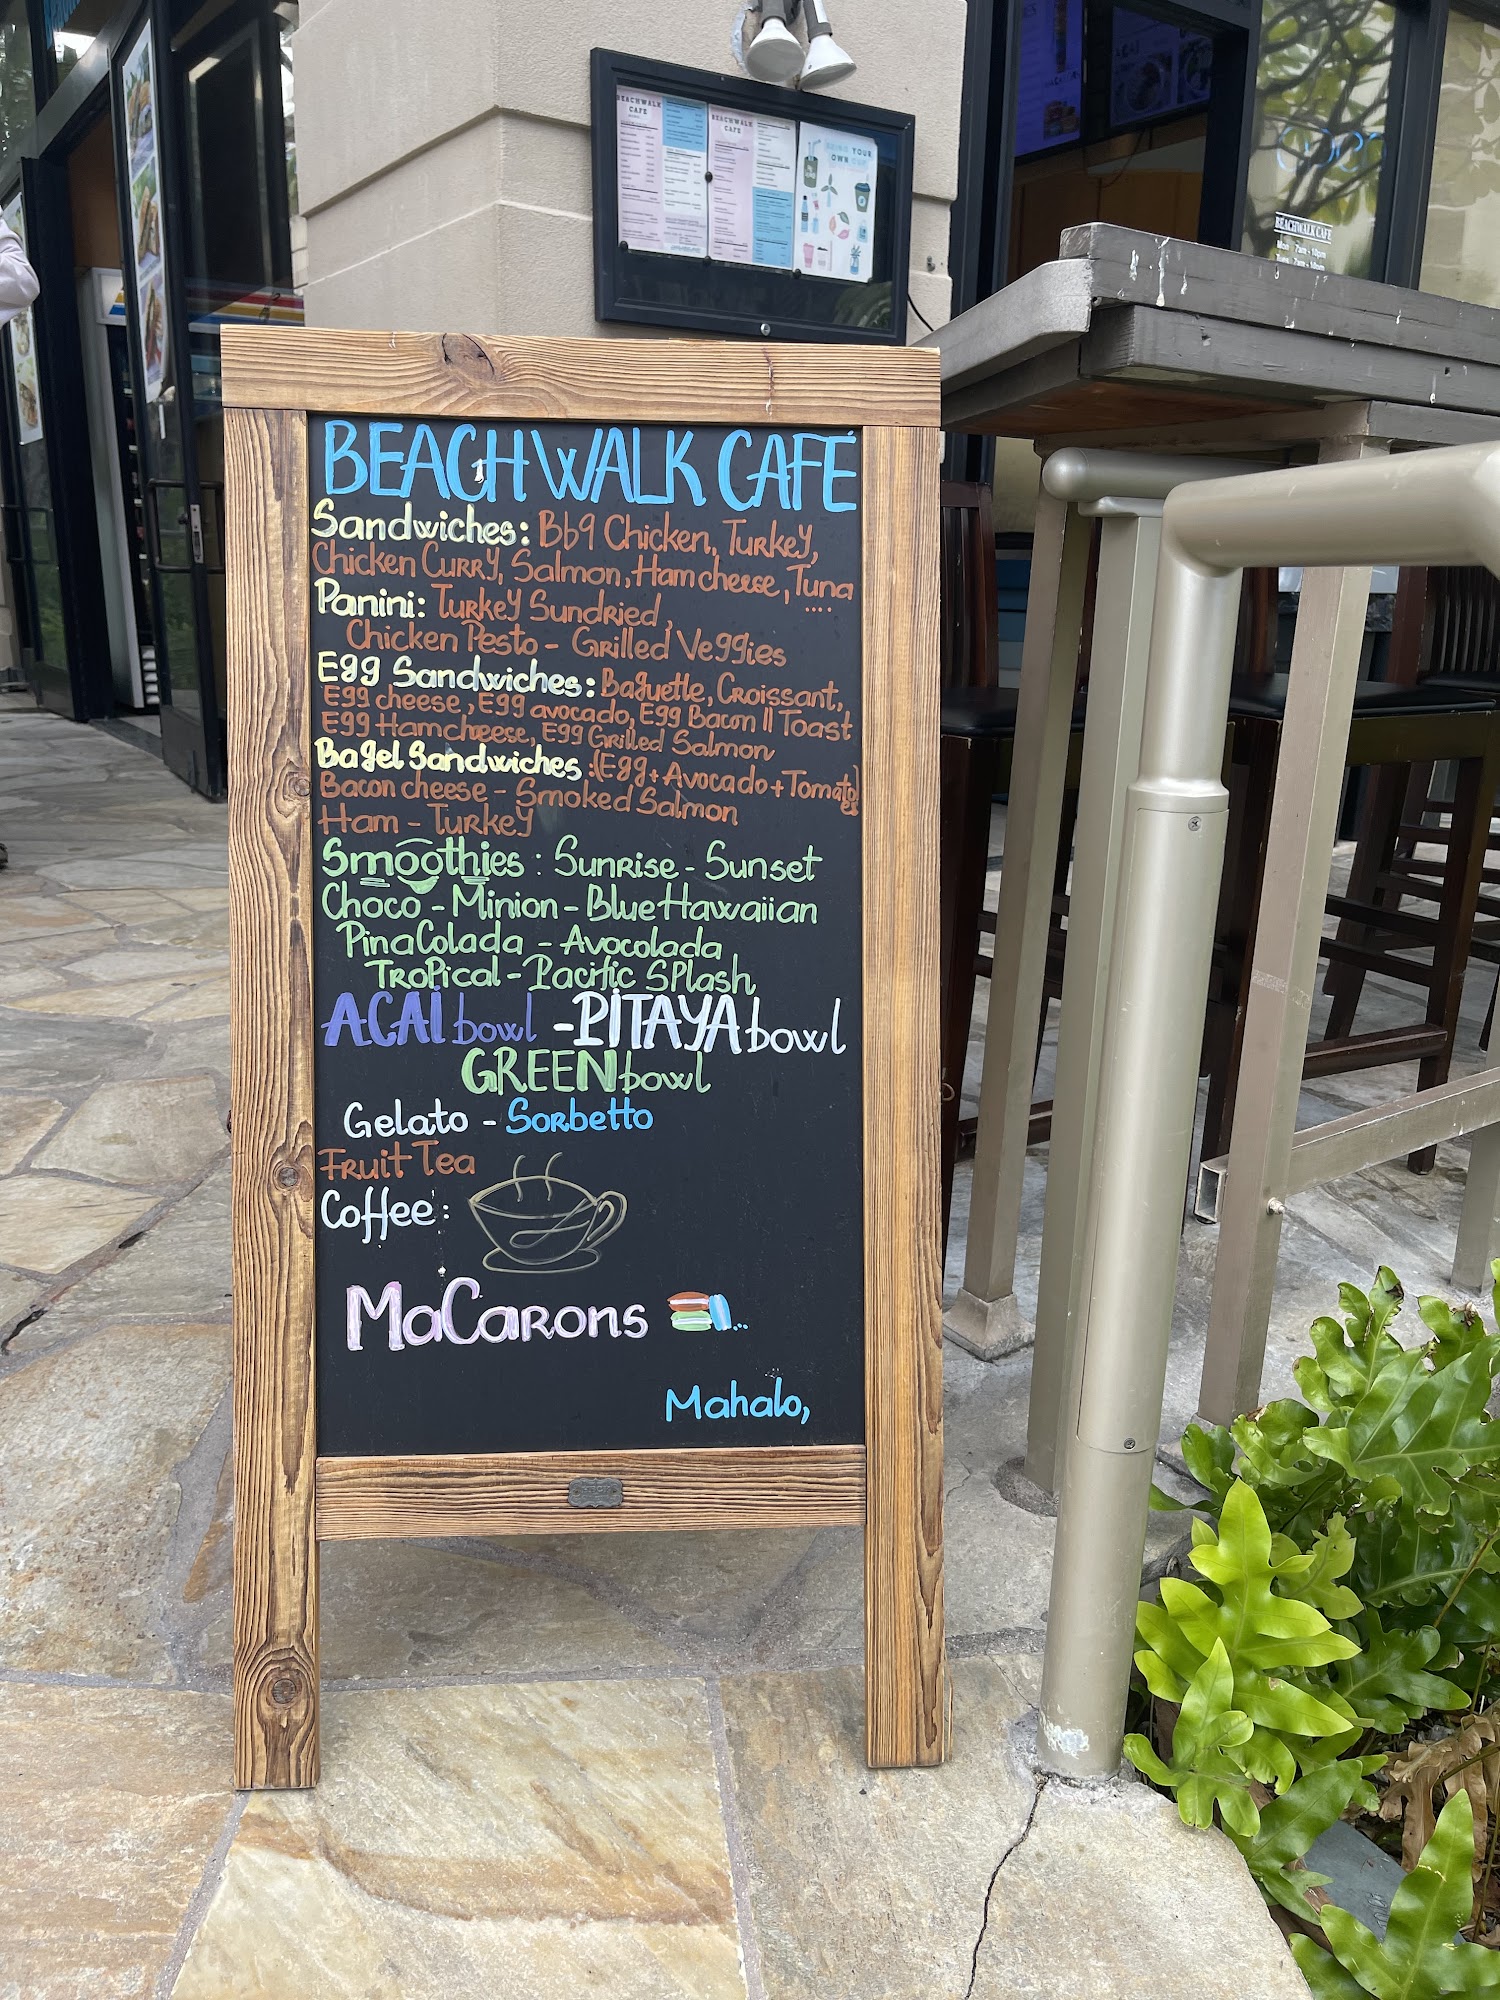 BEACHWALK
CAFE
BEACHWALK
CAFE
BRING YOUR
OWN CUP
ACAI
BEACHWALK CAFE
Mon 7am - 10pm
BEACHWALK CAFÉ
Sandwiches: Bbq Chicken, Turkey,
Chicken Curry, Salmon, Ham cheese, Tuna
....
Panini: Turkey Sundried,
Chicken Pesto - Grilled Veggies
Egg Sandwiches: Baguette, Croissant,
Egg cheese, Egg avocado, Egg Bacon || Toast
Egg Hamcheese, Egg Grilled Salmon
Bagel Sandwiches: (Egg + Avocado + Tomatoes)
Bacon cheese - Smoked Salmon
Ham - Turkey
Smoothies: Sunrise - Sunset
Choco - Minion - Blue Hawaiian
Pina Colada - Avocolada
Tropical - Pacific Splash
ACAI bowl - PITAYA bowl
GREEN bowl
Gelato - Sorbetto
Fruit Tea
Coffee:
MaCarons ...
Mahalo,